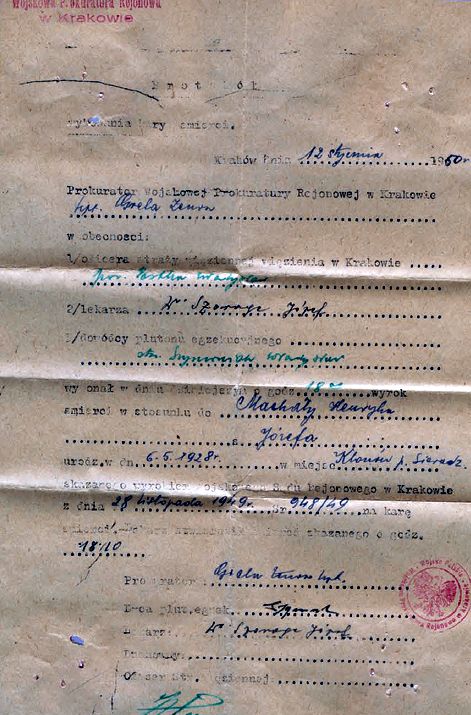 Wojskowa Prokuratura Rejonowa
w Krakowie
Protokół
wykonania kary śmierci.
Kraków dnia 12 stycznia 1950r
Prokurator Wojskowej Prokuratury Rejonowej w Krakowie
kpt. Grela Zenon
w obecności:
1/oficera straży więziennej więzienia w Krakowie
por.
2/lekarza Dr Szorage Józef
3/dowódcy plutonu egzekucyjnego
wykonał w dniu dzisiejszym o godz. 18 wyrok
śmierci w stosunku do Machały Henryka
s. Józefa
urodz.w dn. 6.5.1928r. w miejsc. p. Sieradz
skazanego wyrokiem Wojskowego Sądu Rejonowego w Krakowie
z dnia 28 listopada 1949. Sr. 948/49 na karę
śmierci. Lekarz skazanego o godz.
18.10
Prokurator: Grela Zenon kpt.
D-ca plut.egzek.
Lekarz: Dr Szorage Józef
Duchowny:
Oficer Str. Więziennej